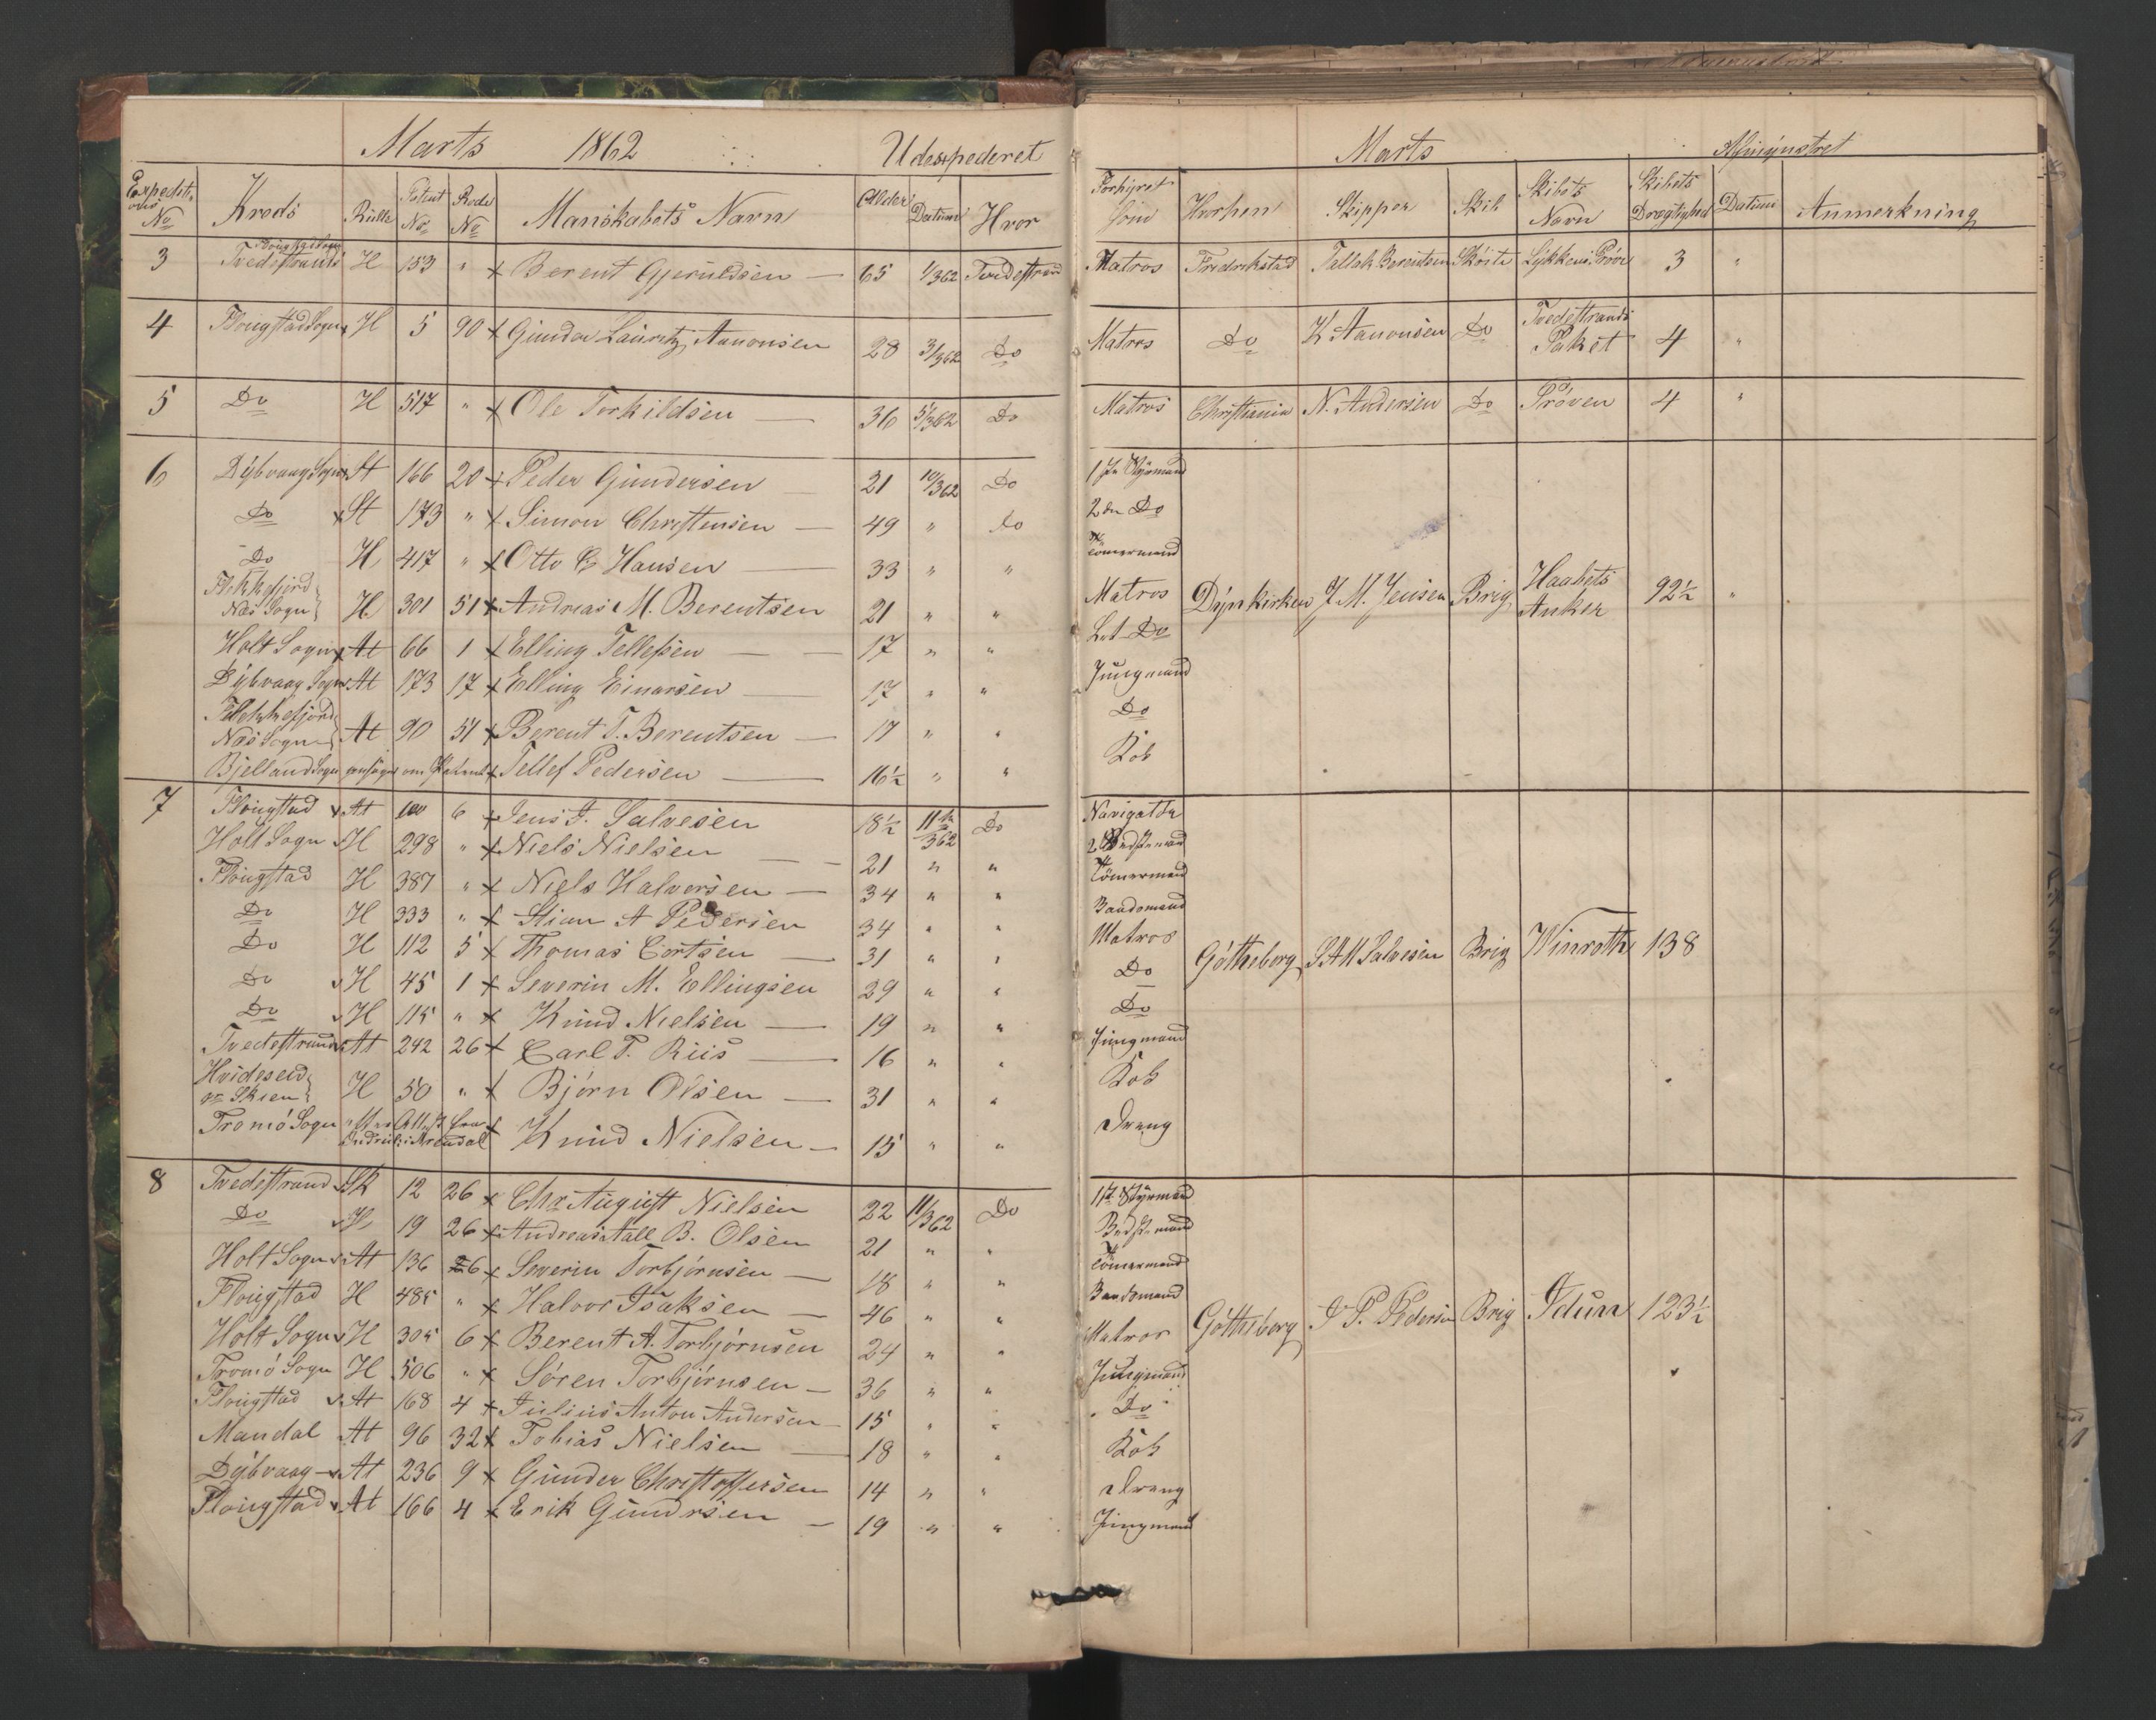 Marts 1862 Udexpederet
Expeditions No Kreds Rulle Patent No Rode No Manskabets Navn Alder Datum Hvor
3 Tvedestrands H 153 " x Berent Gjeruldsen — 65 1/3 62 Tvedestrand
4 Flougstad Sogn H 5 90 x Gunder Lauritz Aanonsen 28 3/3 62 Do
5 Do H 517 " x Ole Torkildsen — 36 5/3 62 Do
6 Dybvaag Sogn St 166 20 x Peder Gundersen — 21 10/3 62 Do
Do x St 173 " x Simon Christensen — 49 " Do
Do H 417 " x Otto C Hansen — 33 " "
Flekkefjord
Næs Sogn } H 301 51 x Andreas M. Berentsen 21 " "
Holt Sogn x At 66 1 x Elling Tellefsen — 17 " "
Dybvaag Sogn At 173 17 x Elling Einarsen — 17 " "
Flekkefjord
Næs Sogn } At 90 51 x Berent T. Berentsen — 17 " "
Bjelland Sogn om Patent x Tellef Pedersen — 16½ " "
7 Flougstad v At 100 6 x Jens J. Salvesen 18½ 11te/3 62 Do
Holt Sogn v H 298 " x Niels Nielsen — 21 " "
Flougstad H 387 " x Niels Halvorsen — 34 " "
Do H 333 " x Stian A Pedersen 34 " "
Do H 112 5 x Thomas Cortsen — 31 " "
Do v H 45 1 x Severin M. Ellingsen 29 " "
Do v H 115 " x Knud Nielsen — 19 " "
Tvedestrand At 242 26 x Carl T. Riis — 16 " "
Hvideseid
pr Skien } H 50 " x Bjørn Olsen — 31 " "
Tromö Sogn Attest fra
Arendal x Knud Nielsen — 15 " "
8 Tvedestrand v SK 12 26 x Chr. August Nielsen 22 11/3 62 Do
Do v H 19 26 x Andreas Nall B. Olsen 21 " "
Holt Sogn v At 136 6 x Severin Torbjørnsen — 18 " "
Flougstad H 485 " x Halvor Isaksen — 46 " "
Holt Sogn v H 305 6 x Berent A. Torbjørnsen 24 " "
Tromö Sogn H 506 " x Søren Torbjørnsen — 36 " "
Flougstad v At 168 4 x Julius Anton Andersen 15 " "
Mandal At 96 32 x Tobias Nielsen — 18 " "
Dybvaag — v At 236 9 x Gunder Christoffersen 14 " "
Flougstad v At 166 4 x Erik Gundrsen — 19 " "
Marts Afmynstret
Forhyret Som Hvorhen Skipper Skib Skibets Navn Skibets Drægtighed Datum Anmerkning
Matros Fredrikstad Tallak Berentsen Skøite Lykkens Prøve 3 "
Matros Do K Aanonsen Do Tvedestrands
Paket 4 "
Matros Christiania N. Andersen Do Prøven 4 "
1ste Styrmand
2den Do
Tömermand
Matros Dynkirken J. M. Jensen Brig Haabets
Anker 92½ "
Let Do
Jungmand
Do
Kok
Navigatör
2 Bedstemand
Tömermand
Baadsmand
Matros
Do Götheborg S A M Salvesen Brig Winroth 138
Do
Jungmand
Kok
Dreng
1ste Styrmand
Bedstemand
Tömermand
Baadsmand
Matros Götheborg J P. Pedersen Brig Idun 123½
Jungmand
Do
Kok
Dreng
Jungmand